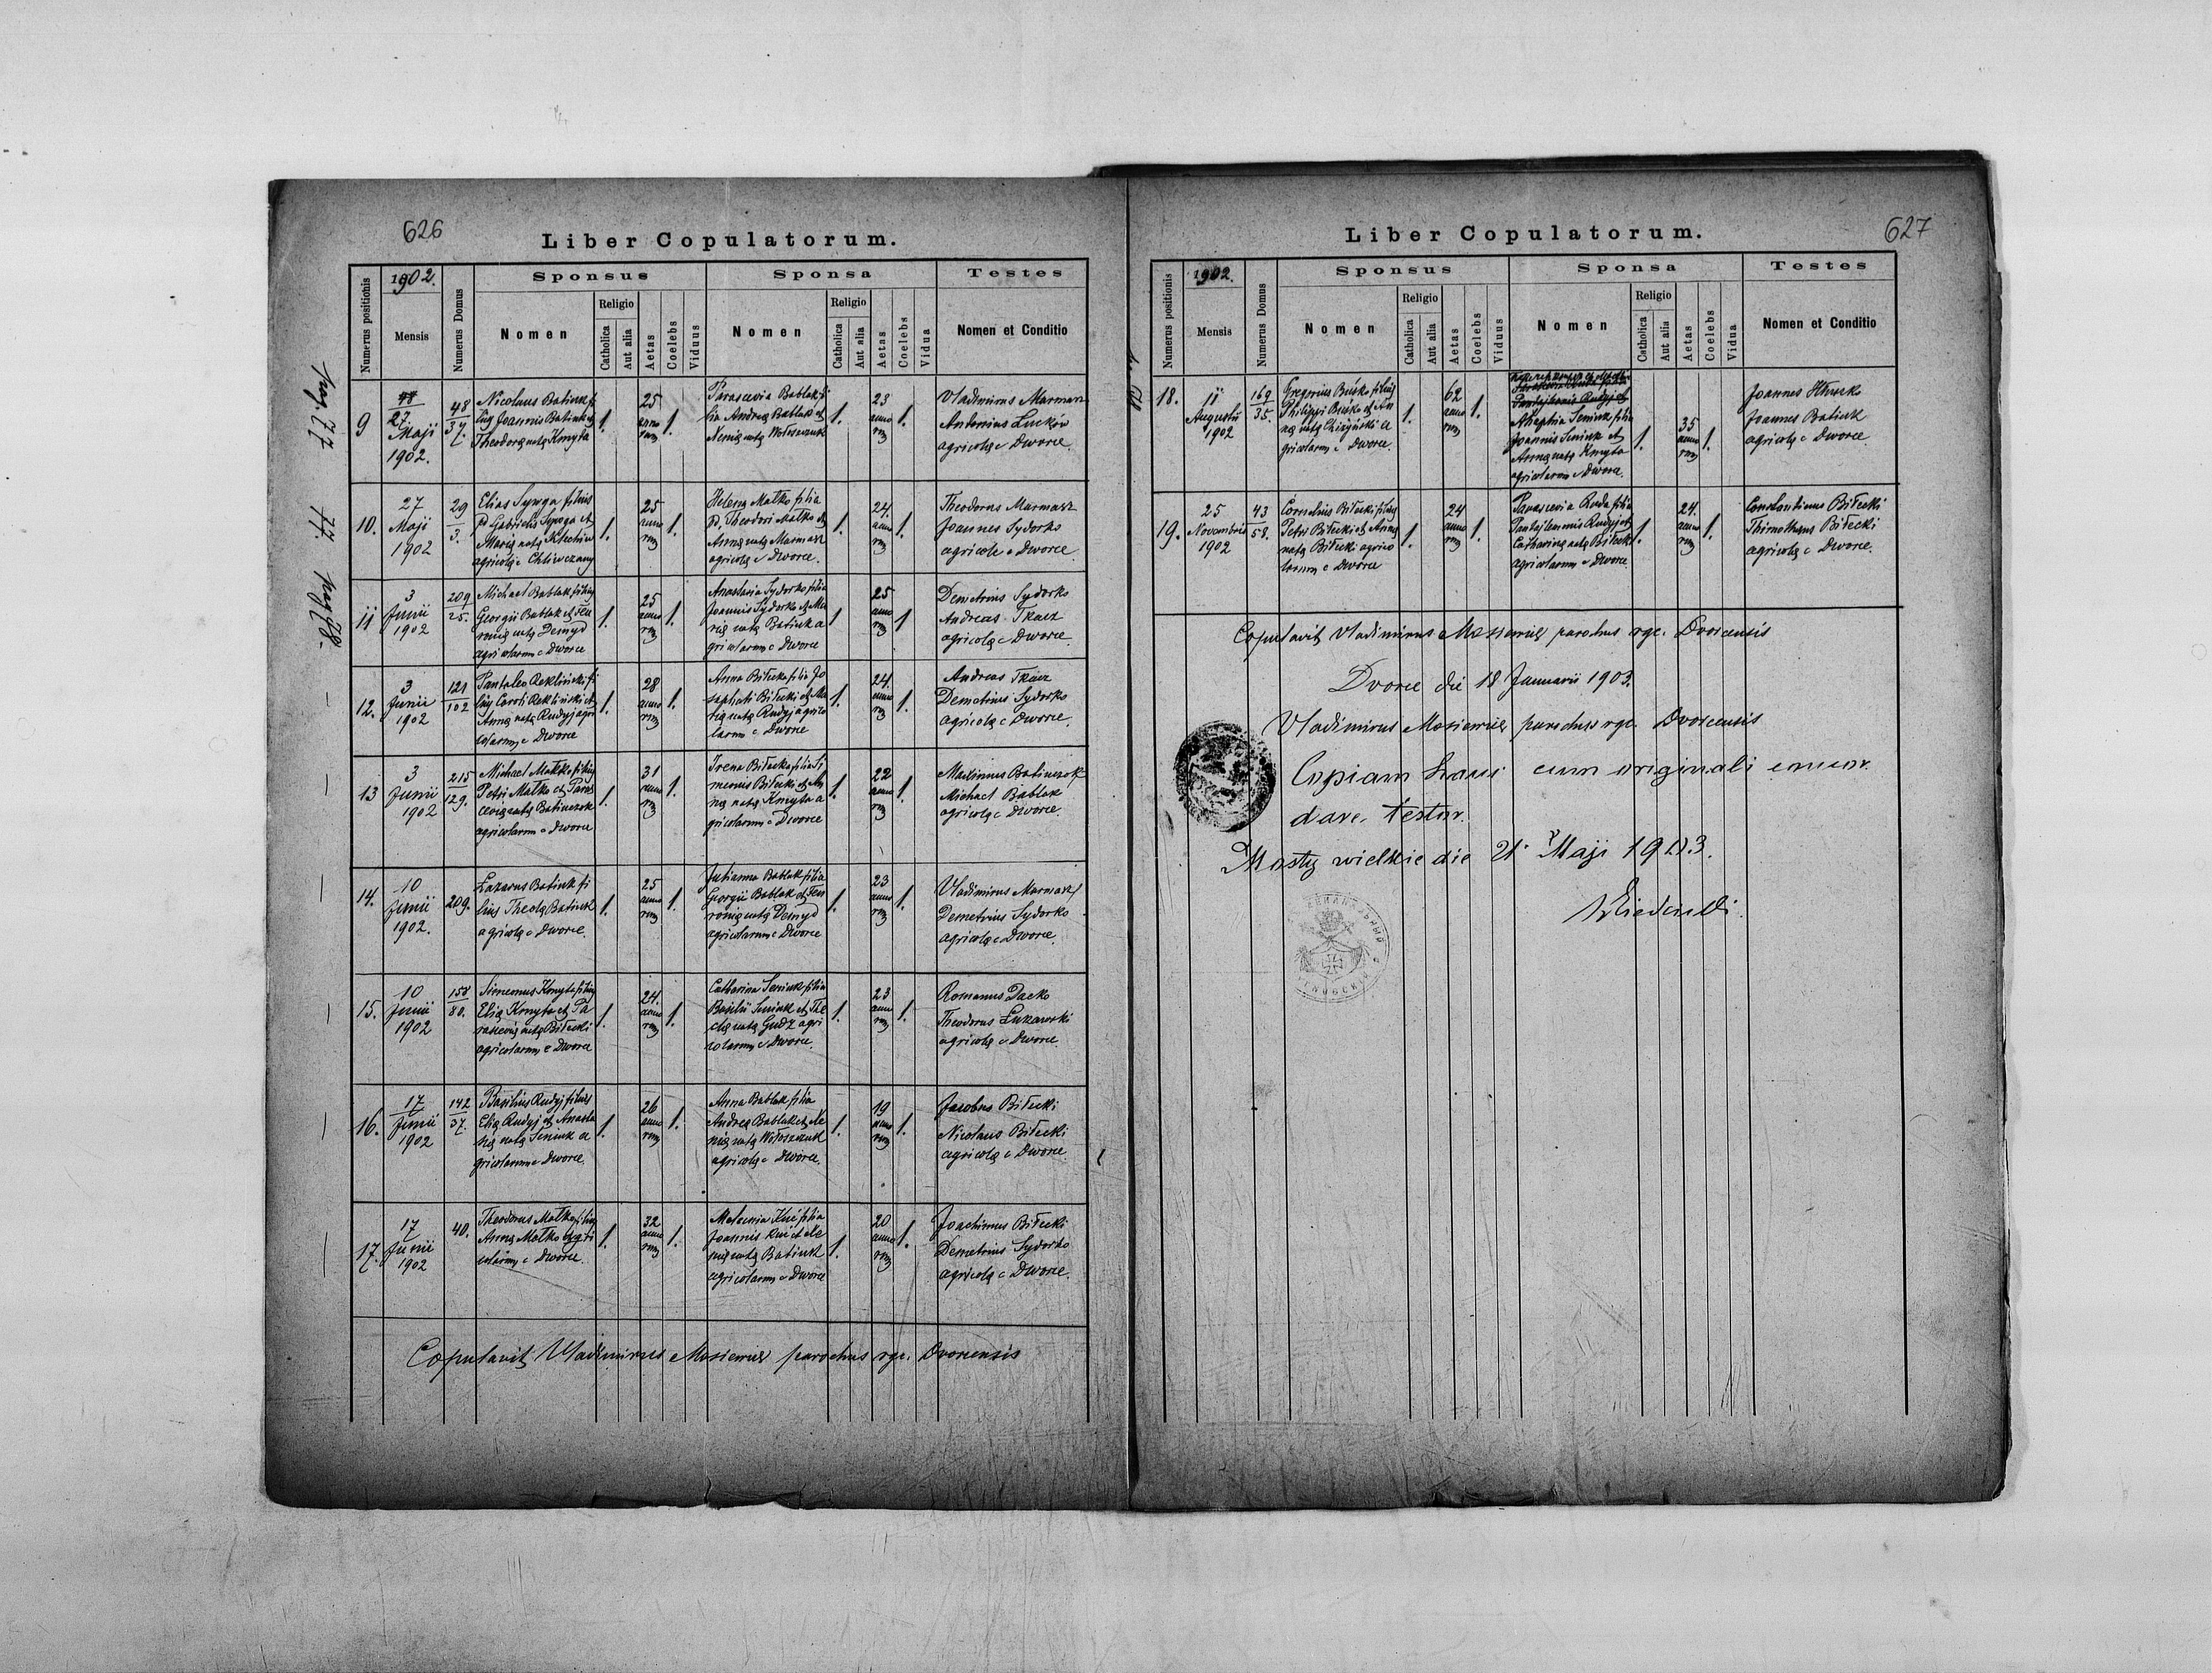 626
Liber Copulatorum.
Numerus positionis
1902.
Mensis
Numerus Domus
Sponsus
Nomen
Religio
Catholica
Aut alia
Aetas
Coelebs
Viduus
Sponsa
Nomen
Religio
Catholica
Aut alia
Aetas
Coelebs
Vidua
Testes
Nomen et Conditio
9
27
Maji
1902.
48
37.
Nicolaus Batiuk fi
lius Joannis Batiuk et
Theodorę natę Kmyta
1.
25
anno
rum
1.
Parascevia Bablak fi
lia Andreę Bablak et
Xenię natę Wołoszczuk
1.
23
anno
rum
1.
Vladimirus Marmasz
Antonius Luców
agricolę e Dworce.
10.
27
Maji
1902
29
3.
Elias Sysoga filius
P. Gabrielis Sysoga et
Marię natę
agricolę e Chliwczany
1.
25
anno
rum
1.
Helena Małko filia
P. Theodori Małko et
Annę natę Marmasz
agricolę e Dworce.
1.
24.
anno
rum
1.
Theodorus Marmasz
Joannes Sydorko
agricolę e Dworce
11
3
Junii
1902
209
25.
Michael Bablak filius
Georgii Bablak et Feu
ronię natę Demyd
agricolarum e Dworce
1.
25
anno
rum
1.
Anastasia Sydorko filia
Joannis Sydorko et Ma
rię natę Batiuk a
gricolarum e Dworce
1
25
anno
rum
1
Demetrius Sydorko
Andreas Tkacz
agricolę e Dworce.
12.
3
Junii
1902
121
102
Pantaleo Rekliński fi
lius Caroli Rekliński et
Annę natę Rudyj agri
colarum e Dworce
1.
28
anno
rum
1.
Anna Biłecka filia Jo
saphati Biłecki et Ma
rię natę Rudyj agrico
larum e Dworce
1.
24.
anno
rum
1.
Andreas Tkacz
Demetrius Sydorko
agricolę e Dworce.
13
3
Junii
1902
215
129.
Michael Małko filius
Petri Małko et Paras
cevię natę Batiuczok
agricolarum e Dworce
1.
31
anno
rum
1.
Irena Biłecka filia Si
meonis Biłecki et An
nę natę Kmyta a
gricolarum e Dworce
1.
22
anno
rum
1.
Maximus Batiuczok
Michael Bablak
agricolę e Dworce.
14.
10
Junii
1902.
209.
Lazarus Batiuk fi
lius Theclę Batiuk
agricolę e Dworce.
1.
25
anno
rum
1.
Julianna Bablak filia
Georgii Bablak et Feu
ronię natę Demyd
agricolarum e Dworce
1.
23
anno
rum
1.
Vladimirus Marmasz
Demetrius Sydorko
agricolę e Dworce.
15.
10
Junii
1902
158
80.
Simeonus Kmyta filius
Elię Kmyta et Pa
rascevię natę Biłecki
agricolarum e Dworce
1.
24.
anno
rum
1.
Catharina Seniuk filia
Basilii Seniuk et The
clę natę Gudz agri
colarum e Dworce.
1.
23
anno
rum
1.
Romanus Dacko
Theodorus Łukawski
agricolę e Dworce.
16.
17
Junii
1902
142
37.
Basilius Rudyj filius
Elię Rudyj et Anasta
się natę Seniuk a
gricolarum e Dworce.
1.
26
anno
rum
1.
Anna Bablak filia
Andreę Bablak et Xe
nię natę Wołoszczuk
agricolę e Dworce.
1.
19
anno
rum
1.
Jacobus Biłecki
Nicolaus Biłecki
agricolę e Dworce
17.
17
Junii
1902
40.
Theodorus Małko filius
Annę Małko agri
colarum e Dworce.
1.
32
anno
rum
1.
Melania Kuć filia
Joannis Kuć et Xe
nię natę Batiuk
agricolarum e Dworce
1.
20
anno
rum
1.
Joachimus Biłecki
Demetrius Sydorko
agricolę e Dworce.
Copulavit Vladimirus Mosiewicz parochus rgc. Dvorcensis
627
Liber Copulatorum.
Numerus positionis
1902.
Mensis
Numerus Domus
Sponsus
Nomen
Religio
Catholica
Aut alia
Aetas
Coelebs
Viduus
Sponsa
Nomen
Religio
Catholica
Aut alia
Aetas
Coelebs
Vidua
Testes
Nomen et Conditio
18.
11
Augusti
1902
169
35.
Gregorius Busko filius
Philippi Busko et An
nę natę a
gricolarum e Dworce.
1.
62
anno
rum
1.
Ahaphia Seniuk filia
Joannis Seniuk et
Annę natę Kmyta
agricolarum e Dworce.
1.
35
anno
rum
1.
Joannes Hłuszko
Joannes Batiuk
agricolę e Dworce
19.
25
Novembris
1902
43
58.
Cornelius Biłecki filius
Petri Biłecki et Annę
natę Biłecki agrico
larum e Dworce
1.
24
anno
rum
1.
Parascevia Ruda filia
Pantaleonis Rudyj et
Catharinę natę Biłecki
agricolarum e Dworce.
1.
24.
anno
rum
1.
Constantinus Biłecki
Thimotheus Biłecki
agricolę e Dworce.
Copulavit Vladimirus Mosiewicz parochus rgc. Dvorcensis
Dvorce die 18 Januarii 1903.
Vladimirus Mosiewicz parochus rgc. Dvorcensis
Copiam hanc cum originali concor
dare testor.
Mosty wielkie die 21 Maji 1903.